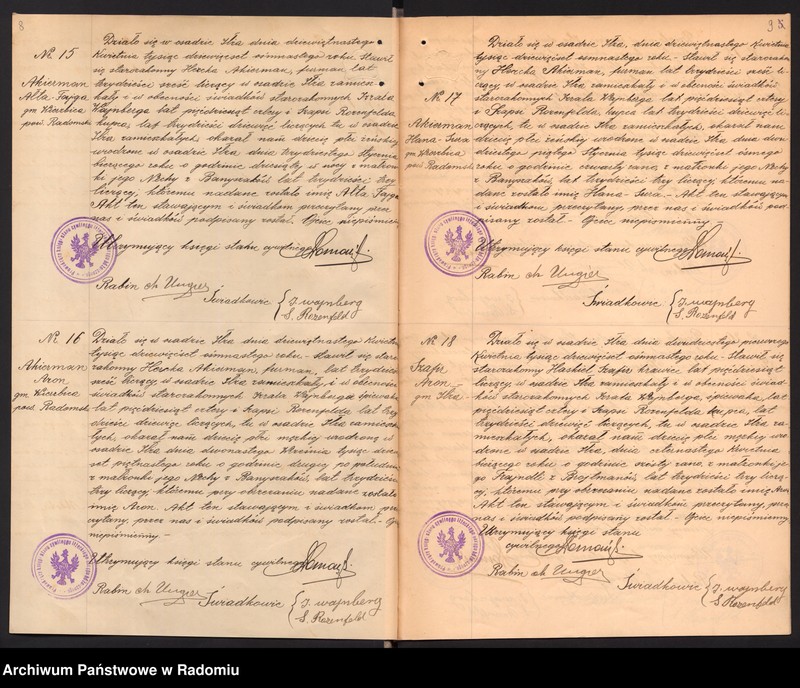 8
№ 15
Akierman
Ałta, Fajga
gm Wierzbica
pow. Radomski
Działo się w osadzie Iłża dnia dziewiętnastego
Kwietnia tysiąc dziewięćset ośmnastego roku. Stawił
się starozakonny Herszk Akierman, furman lat
trzydzieści sześć liczący w osadzie Iłża zamiesz-
kały i w obecności świadków starozakonnych Izrala
Wajnberga lat pięćdziesiąt cztery i Szapsi Rozenfelda,
kupca, lat trzydzieści dziewięć liczących, tu w osadzie
Iłża zamieszkałych, okazał nam dziecię płci żeńskiej
urodzone w osadzie Iłża dnia trzydziestego Stycznia
bieżącego roku o godzinie dziewiątej w nocy z małżon-
ki jego Nechy z Banyszków, lat trzydzieści trzy
liczącej, któremu nadane zostało imię Ałta Fajga
Akt ten stawającym i świadkom przeczytany przez
nas i świadków podpisany został. Ojciec niepiśmienny
Utrzymujący księgi stanu cywilnego
Rabin ch Ungier
Świadkowie { I. wajnberg
S. Rozenfeld
№ 16
Akierman
Aron
gm Wierzbica
pow. Radomski
Działo się w osadzie Iłża dnia dziewiętnastego Kwietnia
tysiąc dziewięćset ośmnastego roku. Stawił się staro-
zakonny Herszk Akierman, furman, lat trzydzieści
sześć liczący w osadzie Iłża zamieszkały, i w obecności
świadków starozakonnych Izrala Wajnberga śpiewaka
lat pięćdziesiąt cztery i Szapsi Rozenfelda lat trzy-
dzieści dziewięć liczących, tu w osadzie Iłża zamiesz-
kałych, okazał nam dziecię płci męzkiej urodzone w
osadzie Iłża dnia dwunastego Września tysiąc dziew-
set piętnastego roku o godzinie drugiej po południu
z małżonki jego Nechy z Banyszków lat trzydzieści
trzy liczącej, któremu przy obrzezaniu nadane zostało
imię Aron. Akt ten stawającym i świadkom prze-
czytany, przez nas i świadków podpisany został. Ojciec
niepiśmienny.
Utrzymujący księgi stanu cywilnego
Rabin ch Ungier
Świadkowie { I. wajnberg
S. Rozenfeld
9
№ 17
Akierman
Hana-Sura
gm Wierzbica
pow. Radomski
Działo się w osadzie Iłża, dnia dziewiętnastego Kwietnia
tysiąc dziewięćset ośmnastego roku. Stawił się starozakon-
ny Herszk Akierman, furman lat trzydzieści sześć li-
czący w osadzie Iłża zamieszkały i w obecności świadków
starozakonnych Izrala Wajnberga lat pięćdziesiąt cztery
i Szapsi Rozenfelda, kupca lat trzydzieści dziewięć li-
czących, tu w osadzie Iłża zamieszkałych, okazał nam
dziecię płci żeńskiej urodzone w osadzie Iłża dnia dwu-
dziestego piątego Stycznia tysiąc dziewięćset ósmego
roku o godzinie czwartej rano, z małżonki jego Nechy
z Banyszków, lat trzydzieści trzy liczącej, któremu na-
dane zostało imię Hana-Sura. Akt ten stawającym
i świadkom przeczytany, przez nas i świadków pod-
pisany został. Ojciec niepiśmienny.
Utrzymujący księgi stanu cywilnego
Rabin ch Ungier
Świadkowie { I. wajnberg
S. Rozenfeld
№ 18
Szafr
Aron
gm Iłża
Działo się w osadzie Iłża dnia dwudziestego pierwszego
Kwietnia tysiąc dziewięćset ośmnastego roku. Stawił się
starozakonny Haskiel Szafr krawiec lat pięćdziesiąt
liczący, w osadzie Iłża zamieszkały i w obecności świad-
ków starozakonnych Izrala Wajnberga, śpiewaka, lat
pięćdziesiąt cztery i Szapsi Rozenfelda kupca, lat
trzydzieści dziewięć liczących, tu w osadzie Iłża za-
mieszkałych, okazał nam dziecię płci męzkiej uro-
dzone w osadzie Iłża, dnia czternastego Kwietnia
bieżącego roku o godzinie szóstej rano, z małżonki je-
go Frajndli z Brojtmanów, lat trzydzieści trzy liczą-
cej, któremu przy obrzezaniu nadane zostało imię Aron
Akt ten stawającym i świadkom przeczytany, przez
nas i świadków podpisany został. Ojciec niepiśmienny
Utrzymujący księgi stanu
cywilnego
Rabin ch Ungier
Świadkowie { I. wajnberg
S. Rozenfeld
Archiwum Państwowe w Radomiu